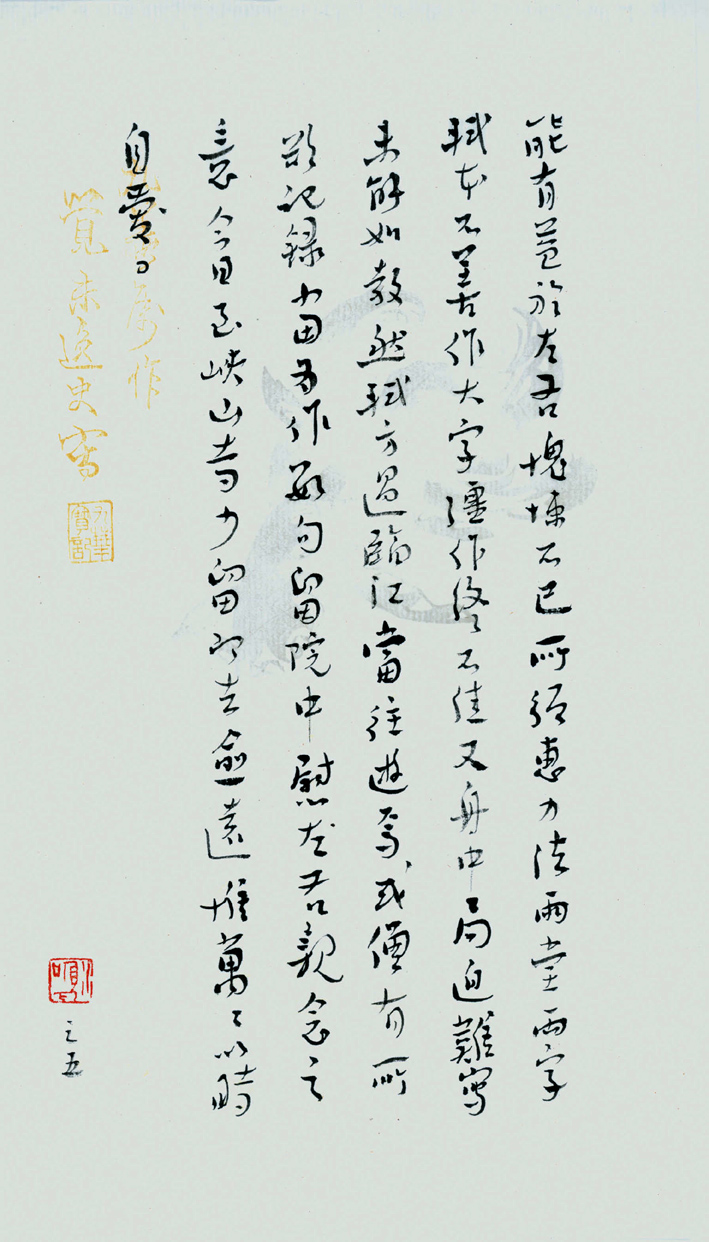 能有益於左右愧悚不已所須惠力法雨堂兩字
軾本不善作大字彊作終不佳又舟中局迫難寫
未能如教然軾方過臨江當往遊焉或僧有所
欲記錄當為作數句留院中慰左右親念之
意今日至峽山寺少留即去愈遠惟萬〻以時
自愛
作
之五